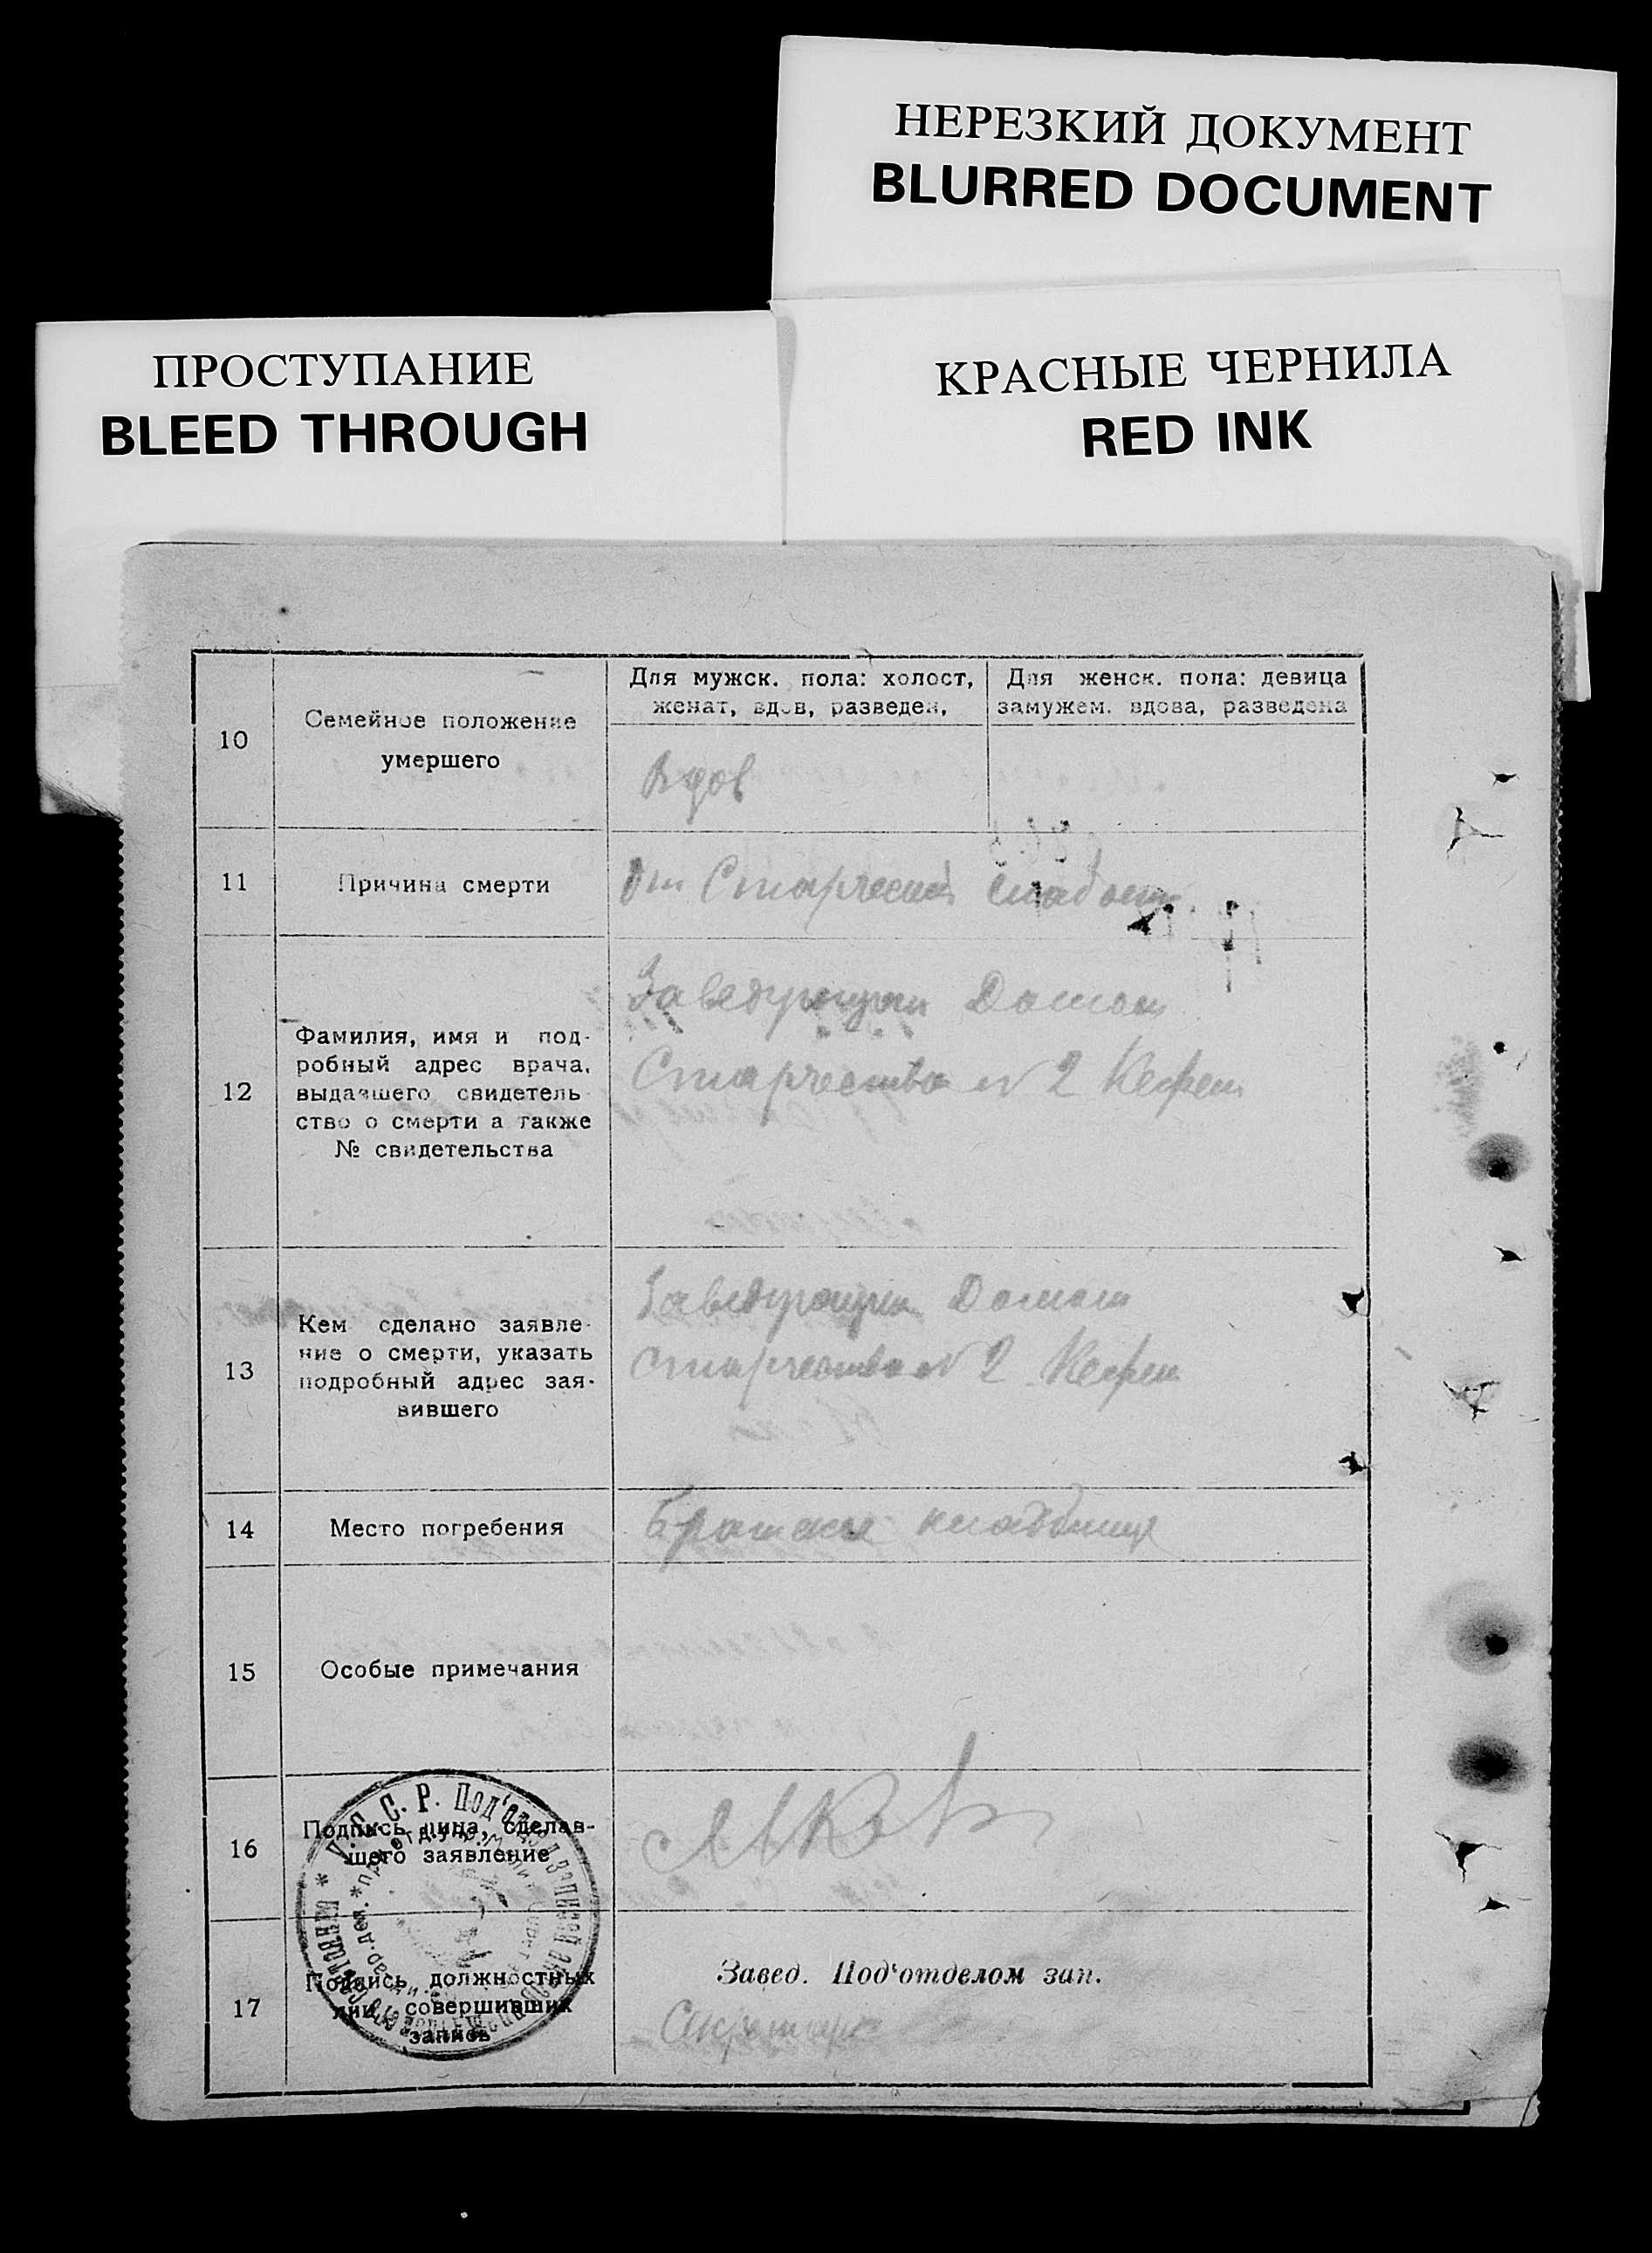 НЕРЕЗКИЙ ДОКУМЕНТ
BLURRED DOCUMENT
ПРОСТУПАНИЕ
BLEED THROUGH
КРАСНЫЕ ЧЕРНИЛА
RED INK
10
Семейное положение
умершего
Для мужск. пола: холост,
женат, вдов, разведен,
Для женск. пола: девица
замужем. вдова, разведена
Вдов
11
Причина смерти
От Старческой слабости
12
Фамилия, имя и под-
робный адрес врача,
выдавшего свидетель
ство о смерти а также
№ свидетельства
Заведующий Домом
Старчества № 2
13
Кем сделано заявле-
ние о смерти, указать
подробный адрес зая-
вившего
Заведующий Домом
старчества № 2
14
Место погребения
Братское кладбище
15
Особые примечания
16
Подпись лица, сделав-
шего заявление
17
Подпись должностных
лиц, совершивших
запись
У. С. С. Р. Под‘отдел Записей
Завед. Под‘отделом зап.
Секретарь